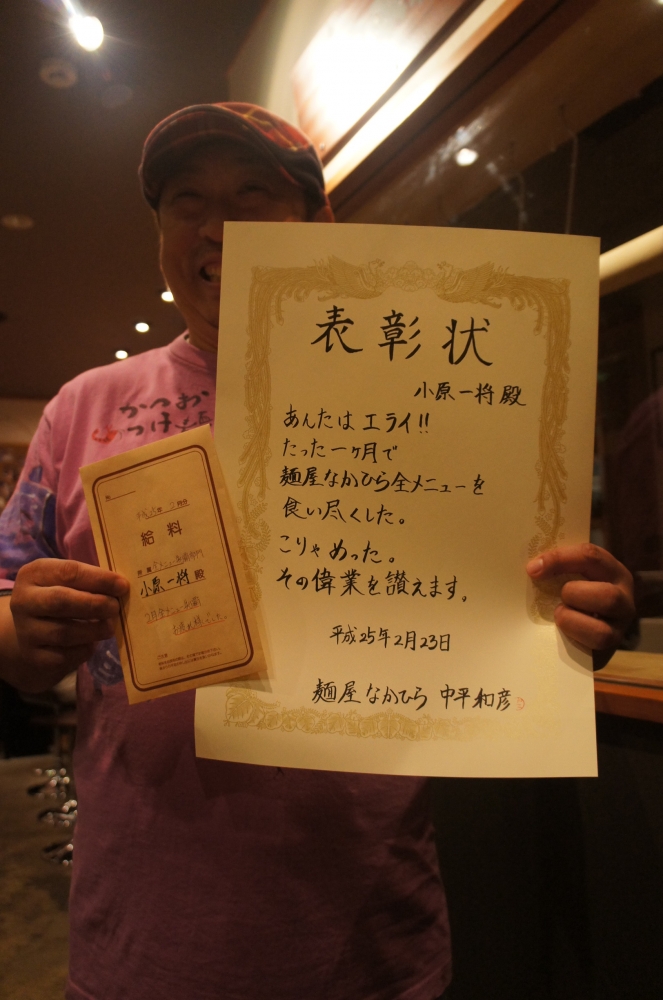 かつおつけ麺
表彰状
小原一将 殿
あんたはエライ!!
たった一ヶ月で
麺屋なかひら全メニューを
食い尽くした。
こりゃめった。
その偉業を讃えます。
平成25年2月23日
麺屋なかひら 中平和彦
給料
小原一将 殿